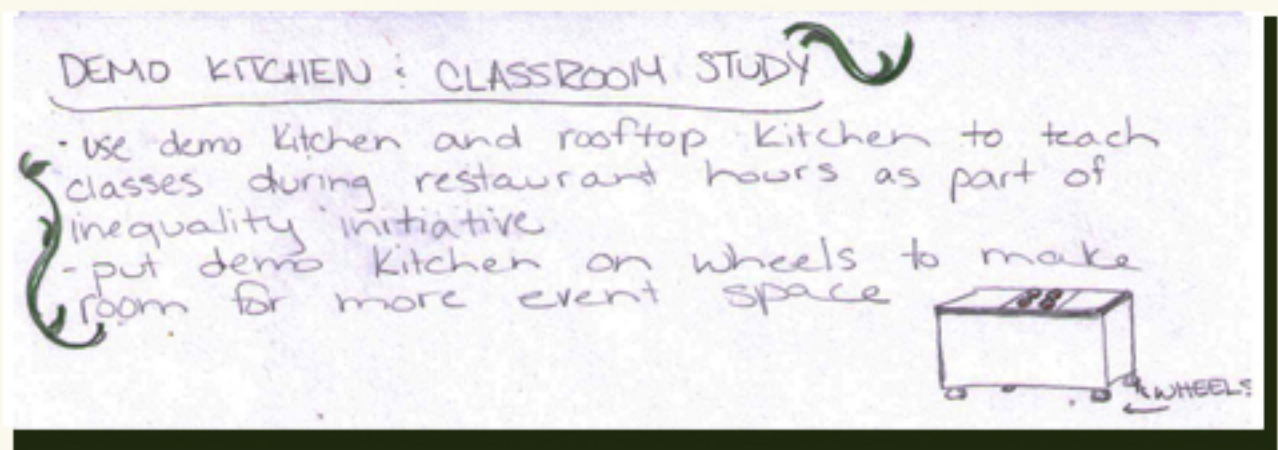 DEMO KITCHEN : CLASSROOM STUDY
- use demo kitchen and rooftop kitchen to teach
classes during restaurant hours as part of
inequality initiative
- put demo kitchen on wheels to make
room for more event space
WHEELS